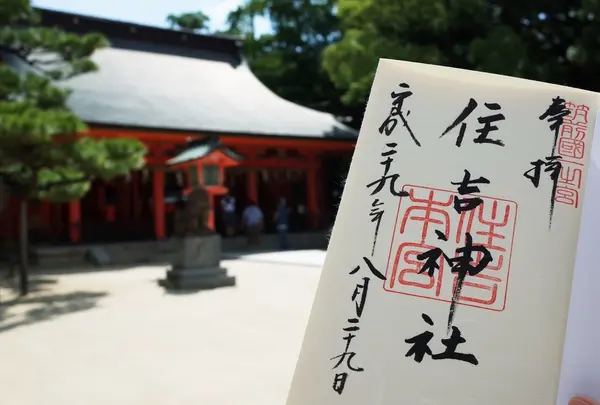 筑前國一之宮
奉拝
住吉神社
住吉本宮
平成二十九年八月二十九日